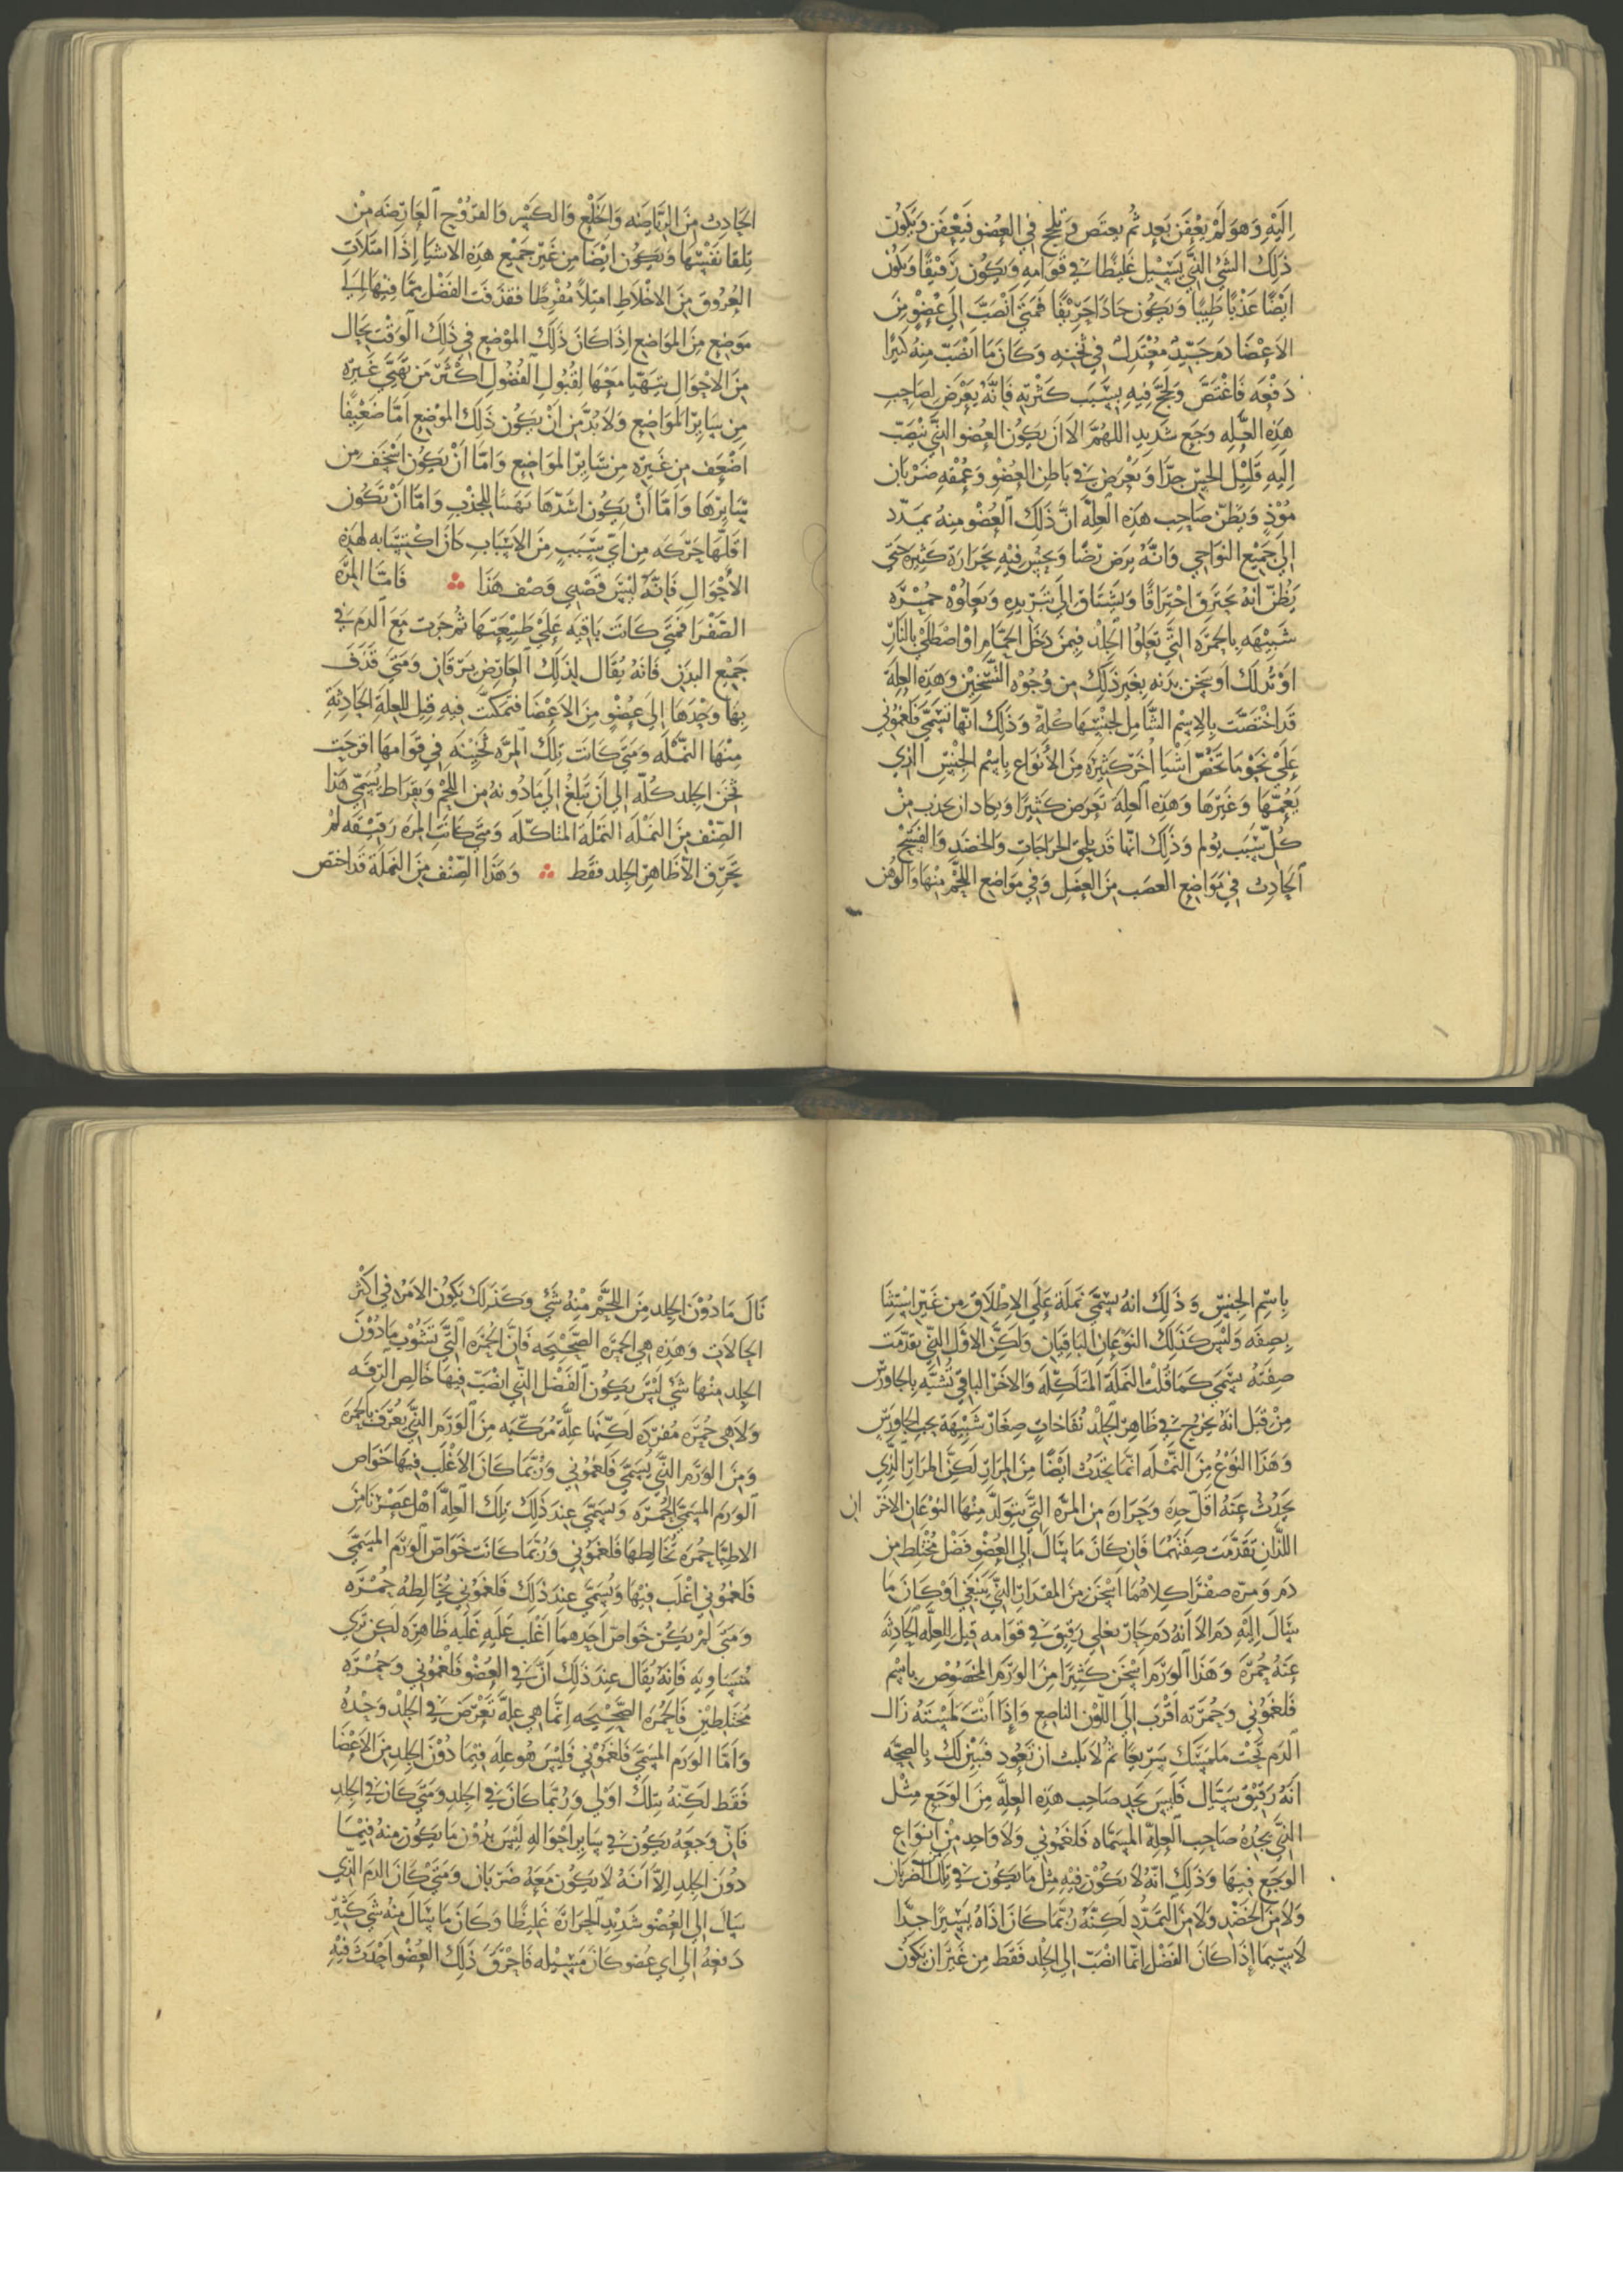 اِلَيْهِ وَهوَ لَمْ يَعْفَن بَعد ثُم يعتَص وَيلحج في العُضو فَيَعْفَن وَيَكون
ذَلِكَ الشي الذَّي يَسيْل غَليْظا في قوَامه وَيَكون رَقيْقًا ويَكون
ايْضًا عَذْبًا طَيبًا وَيَكون حَادًا حرِّيْفًا فَمَتيَ انْصَبّ اِليَ عُضْوٍ مِنَ
الاعْضَا دَم جَيّد مُعْتَدل في ثخنه وَكَانَ مَا انْصَبّ مِنه كثيرًا
دَفْعَه فَاغْتَصَّ وَلحجَ فِيهِ بِسَبَب كَثْرته فَانّه يَعْرض لصَاحِب
هذِه العِلّه وَجَع شَديد اللهُمَّ الا ان يَكون العُضو الذَّي يَنْصَبّ
اِليهِ قَليْل الحسّ جدًّا وَيَعْرض في بَاطِن العُضْو وَعُمْقه ضَرْبَان
مُوْذٍ وَيَظنّ صَاحِب هَذِه العِلَّه انَّ ذَلِكَ العُضْو منه يمدّد
الي جَميْع النواحِي وَانّه يرَض رَضًّا وَيحسّ فيْهِ بحَرارَة كَثيره حَتّي
يَظُنّ انه يحترق احْتِرَاقًا وَيشتَاق الي تَبْريده وَتعلوه حُمْرَه
شَبيْهَه بالحمرَه التَّي تعْلُوا الجلْد فيمَن دَخَل الحمّام او اصْطَلي بالنار
اوْ تدلك او يسخن بدَنه بغَير ذَلكَ من وُجُوْه التَّسْخِيْن وهَذِه العِلةَ
قد اخْتَصَّت بِالاِسْم الشَّامل لِجنْسِهَا كُلّه وَذَلِكَ انّها تسَمّي فَلغمُوني
عَلي نحو مَا تَخُصّ اشيَا اُخَر كثيرَه مِنَ الأنْوَاع باِسْم الجِنْسِ الذي
يعُمّها وَغَيْرهَا وَهَذِه العِله تَعْرض كَثيْرًا وَيكاد ان يحدث مِنْ
كُلِّ سَبَب يُولم وَذَلِكَ انّما قَد يلحق الجراحَات وَالخضد وَالفَسْخ
الحَادِث في مَوَاضِع العصَب مِنَ العضَل وَفي مَوَاضِع اللحْم منْهَا وَالوَهْن
الحَادِث مِنَ الرّيَاضَه وَالخَلْع وَالكَسْر وَالقرُوْح العَارِضَه مِنْ
تِلقا نفْسها وَيَكون ايْضًا مِن غَيْر جَميْع هذِه الاشيَا اِذَا امتَلات
العُرُوق مِنَ الاخْلاَط امتِلاً مُفْرِطًا فقذفَت الفَضْل ممَّا فيْهَا الي
موْضِع مِنَ الموَاضِع اِذا كانَ ذَلِكَ الموْضِع في ذَلِك الوَقْت بحَال
مِنَ الاحْوَال يتهيّا مَعَهَا لقُبُول الفُضول اكثَرَ مَن تهيّي غَيره
مِن سَايِر المواضِع وَلابُدَّ مِن اَنْ يَكُون ذَلِكَ الموْضِع امَّا ضَعيْفًا
اضْعَف من غَيره مِن سَايِر الموَاضِع وَامّا انْ يكُون اسْخَف من
سَايِرهَا وَامّا انْ يكون اشدّهَا تهيّيا للجَذْب وَامّا انْ تَكون
اقلّها حَرَكه مِن ايّ سَبَبٍ مِنَ الاسْبَاب كانَ اكتسَابه لهذِه
الأحْوَال فَانّهُ لَيْسَ قصْدي وَصْف هَذَا ؞ فَامّا المرّه
الصّفْرا فمَتي كَانَت بَاقيَه عَلي طبيْعتهَا ثُم جَرَت مَعَ الدم في
جَميْع البدَن فَانّه يُقَال لِذَلِكَ العَارِض يرَقَان وَمَتي قذفَ
بِها وَحْدهَا اِلي عُضْوٍ مِنَ الاعْضَا فتمكنَت فيهِ قِيل للعِلّة الحَادِثَةِ
مِنْهَا النمْلَه وَمَتي كَانت تِلكَ المرّه ثخيْنَه في قوَامهَا اقرحَت
ثخن الجلد كُلّه الي ان تَبْلغْ الي مَا دُونهُ مِن اللّحْم وَبقرَاط يُسَمّي هَذا
الصِّنْف مِنَ النمْلَه النملَة المتاكّلَه وَمَتي كانَت المره رَقيْقَه لمْ
تحرّق الاّ ظَاهِر الجِلد فقَط ؞ وَهَذا الصِّنْف مِنَ النَملَة قَد اختص
بِاسْمِ الجنس وَذَلِكَ انهُ يسَمّي نمَلَة عَلي الاِطْلاَق مِن غيْر اسْتِثنَا
بصِفَه وَليْس كَذَلِكَ النوْعَان البَاقيَان وَلكنّ الاوّل الذي تقدّمَت
صِفَتهُ يسَمّي كمَا قُلتُ النملَة المتَاكّلَه وَالاخَر البَاقي تُشبّه بالجاورْس
مِنْ قبَل انّهُ يخرُج في ظاهِر الجلْد نُفَاخَات صِغَار شبيْهَة بحب الجاورس
وَهَذَا النوْع مِنَ النَّمْلَه انّما يحدث ايْضًا مِنَ المِرَار لَكنّ المرَار الّذِي
يَحدُثْ عَنْهُ اقلّ حِدَّه وَحَرارة مِن المرّه التي يتوَلّد منْهَا النوْعَان الاخر ان
اللّذَان تقَدّمت صفَتهُمَا فَان كانَ مَا يسَال الي العُضْو فَضْل مُختلِط مِن
دَم وَمرّه صفْرَا كلاهُمَا اسْخَن مِنَ المقدَار الذَّي يَنْبَغي اوْ كانَ مَا
يسَال اِليْه دَم الا انهُ دَم حَارّ يغلي رَقيق في قوامه قيْل للعِلّه الحَادِثَه
عنه حُمرَه وَهَذَا الورَم اسْخَن كثيرًا مِنَ الوَرَم المخصوص باسْم
فلغمُوني وَحُمرَته اقْرَب الي اللّوْن الناصِع وَاِذَا انْتَ لَمسْتَهُ زَال
الدم تَحْت مَلمَسَك سَريعَا ثُم لا يَلبث ان تَعُود فتبيْن لكَ بالصِحّه
انّه رَقيْق سَيّال فَليْسَ يَجد صَاحِب هَذِه العِلّه مِنَ الوَجَع مِثْل
الذي يجدُه صَاحِب العِلّه المسَمّاه فَلغمُوني وَلا وَاحِد مِنْ انوَاع
الوَجَع فيهَا وَذَلِكَ انّه لا يكوْن فيْهِ مثل مَا يَكون في تلكَ الضربَان
وَلاَ منَ الخَضْد وَلاَ مِنَ التمَدّد لكِنّه رُبّما كانَ اذَاه يسِيرًا جدّا
لاَ سِيّما اِذَا كانَ الفَضْل انّما انْصَبّ الي الجلْد فقط مِن غَيْر ان يكون
نَالَ مَا دُوْنَ الجِلْد مِنَ اللحْم منْهُ شي وَكَذَلِكَ يَكون الاَمْرُ في اكثر
الحَالاَت وَهَذِه هِي الحمرَه الصَحيْحَه فَانَّ الحمرَه التَّي تَشُوْب مَا دُوْن
الجِلد منْهَا شَي ليْس يَكون الفَضْل الذي انْصَبّ فيهَا خَالِص الرّقّه
وَلا هِي حُمرَه مُفردَه لكنّهَا علّة مُركّبَه مِنَ الوَرَم الذي يُعْرَف بالحمرَه
وَمِنَ الوَرَم الذي يُسَمّي فَلغمُوني وَرُبّما كانَ الاغْلَب فيهَا خَوَاص
الوَرَم المسَمّي الحُمْرَه وَيسَمّي عِند ذَلِكَ تِلكَ العِلّه اهْل عَصْرنَا مِنَ
الاطبّا حمُرَه تُخالِطهَا فَلغمُوني وَرُبّما كانَت خَوَاصّ الوَرَم المسَمّي
فَلغمُوني اغْلَب فيْهَا وَيُسَمّي عِندَ ذَلِكَ فَلغمُوني يُخَالِطهُ حُمْرَه
وَمَتي لمْ يكُن خَواصّ احَدهمَا اغْلَب عَلَيهِ غَلَبه ظَاهِرَه لكن تري
مُتسَاويه فَانّه يُقَال عِندَ ذَلِكَ انَّ في العُضْو فَلغمُوني وَحُمْرَه
مُختلطيْن فَالحمُرَه الصَحيْحَه اِنّما هِي علّه تَعْرض في الجلد وَحْدهُ
وَامّا الوَرَم المسَمّي فَلغمُوني فَليْسَ هُو علّه فيمَا دُوْنَ الجلْد مِنَ الاعْضَا
فقَط لكِنّه بتلكَ اوْلي وَرُبّما كانَ في الجلد وَمَتي كان في الجلد
فَانّ وَجَعه يَكون في سَايِر احْوَالِهِ ليْسَ بدُون مَا يَكون منهُ فيْمَا
دُوْنَ الجلد اِلاّ انّهُ لا يَكون مَعَهُ ضَرَبَان وَمَتي كَانَ الدَم الّذي
سَالَ الي العُضْو شديْد الحرَارَة غَليظًا وَكانَ مَا يسَال منْهُ شي كَثير
دَفْعه الي اي عُضو كانَ مَسِيْله فَاحْرَق ذَلِكَ العُضْو احْدَث فيْهِ